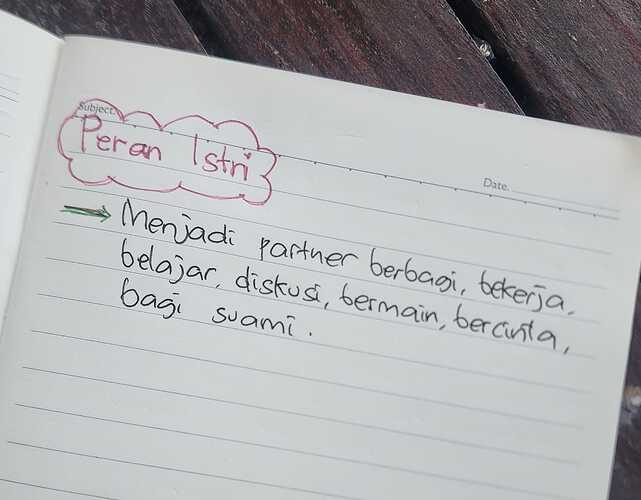 Subject:
Peran Istri
Date.
Menjadi partner berbagi, bekerja,
belajar, diskusi, bermain, bercinta,
bagi suami.